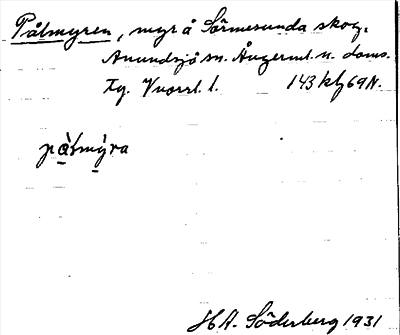 Pålmyren, myr å Sörmesunda skog.
Anundsjö sn. Ångerml. n. doms.
143 kb 69 N.
pàlmýra
H A. Söderberg 1931